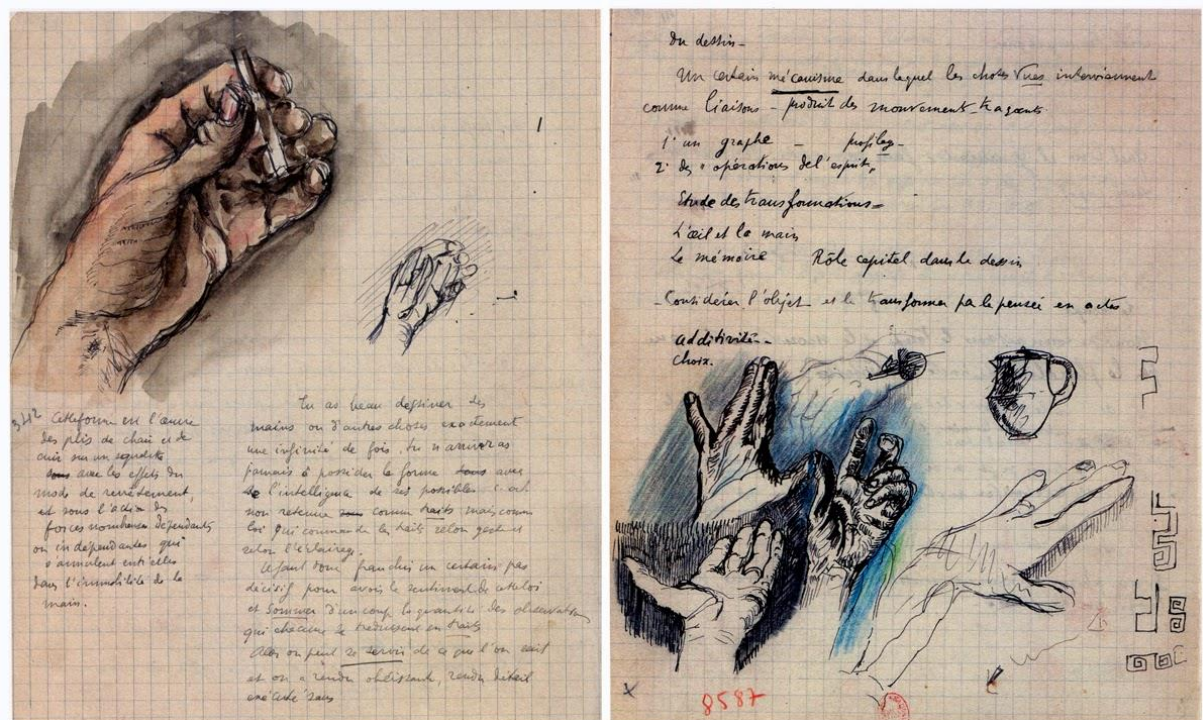 342 Cette forme est l'œuvre
des plis de chair et de
cuir sur un squelette
avec les effets du
mode de revêtement,
et sous l'action des
forces nombreuses dépendantes
ou indépendantes qui
s'annulent entr'elles
dans l'immobilité de la
main.
Tu as beau dessiner des
mains ou d'autres choses exactement
une infinité de fois, tu n'arriveras
jamais à posséder la forme avec
l'intelligence de ses possibles
non retenue comme traits mais comme
loi qui commande les traits selon
selon l'éclairage.
Il faut donc franchir un certain pas
décisif pour avoir le sentiment de cette loi
et sommer d'un coup la quantité des observations
qui chacune se traduisent en traits
Alors on peut se servir de ce que l'on sait
et on a rendu obéissant, rendu détail
exécuté dans
Du dessin -
Un certain mécanisme dans lequel les choses vues interviennent
comme liaisons - produit des mouvements traçants
1° un graphe - profilage -
2° des "opérations de l'esprit"
Etude des transformations =
L'œil et la main
La mémoire Rôle capital dans le dessin
- Considérer l'objet et le transformer par la pensée en actes
additivités -
Choix.
8587